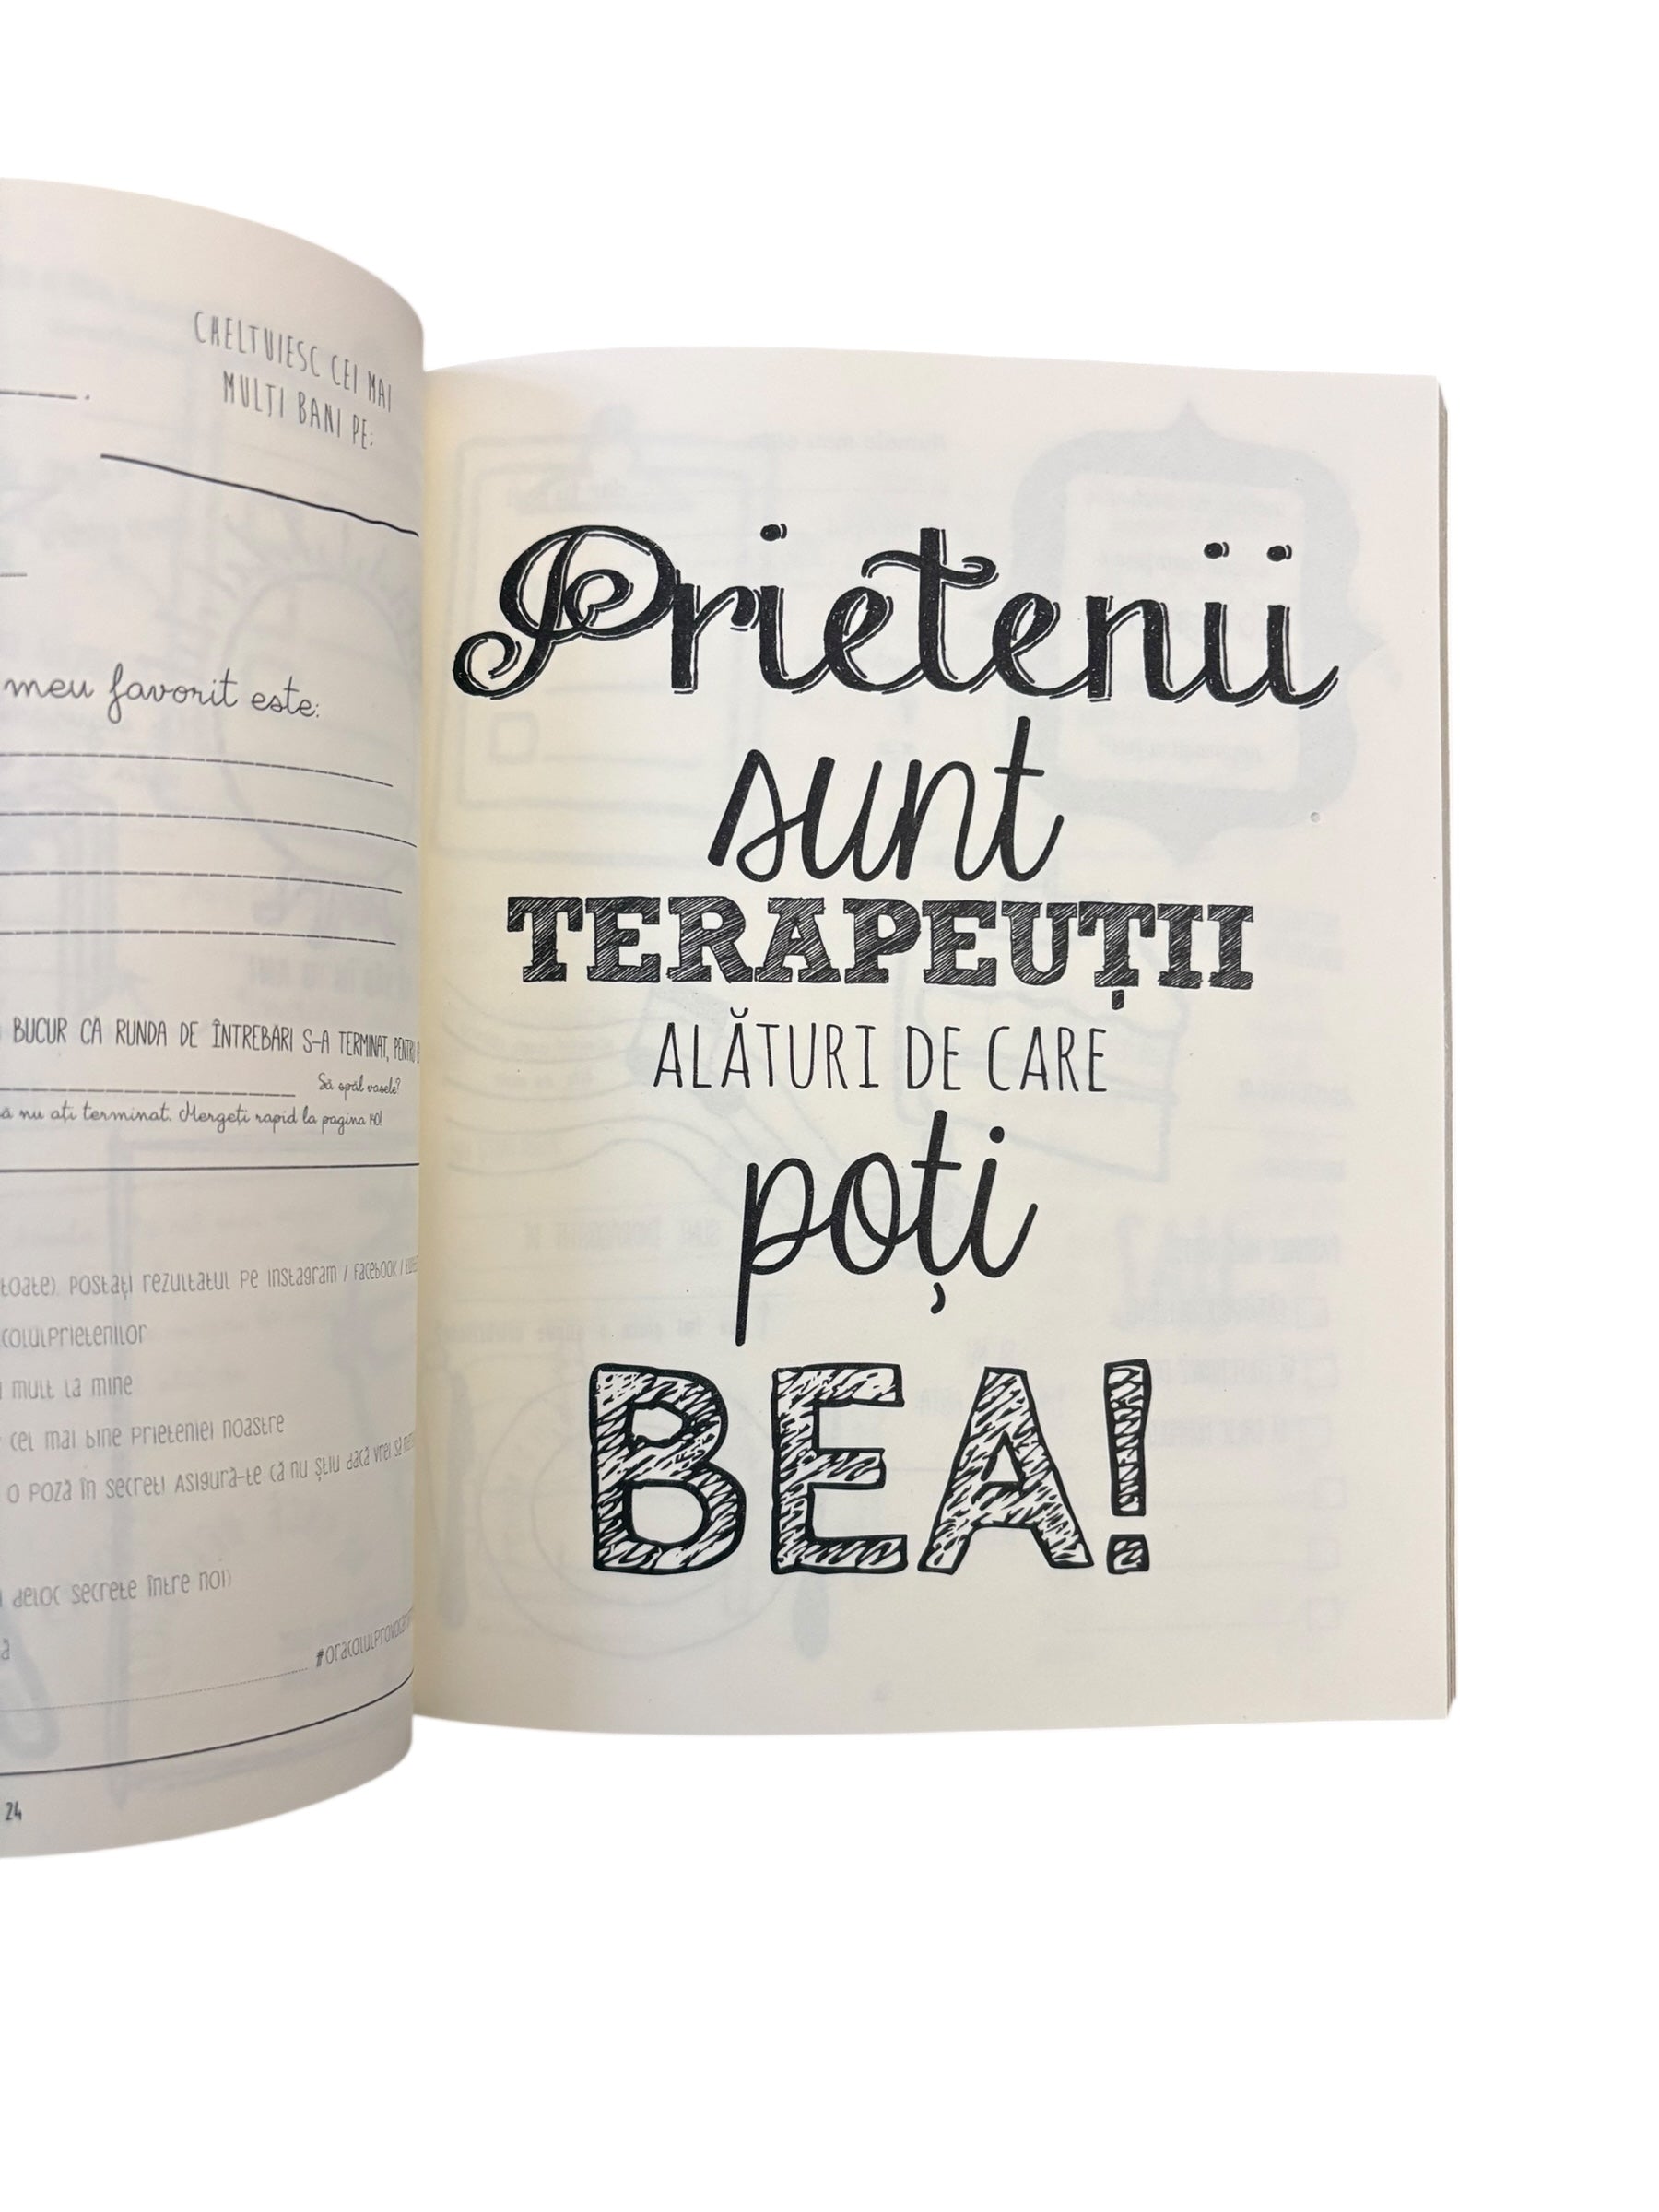 CHELTUIESC CEI MAI
MULȚI BANI PE:
meu favorit este:
BUCUR CĂ RUNDA DE ÎNTREBĂRI S-A TERMINAT,
Să spăl vasele?
nu ați terminat. Mergeți rapid la pagina 40!
toate). Postați rezultatul pe Instagram / Facebook /
mult la mine
cel mai bine prieteniei noastre
o poză în secret! Asigură-te că nu știu dacă vrei să
deloc secrete între noi)
24
Prietenii
sunt
TERAPEUȚII
ALĂTURI DE CARE
poți
BEA!